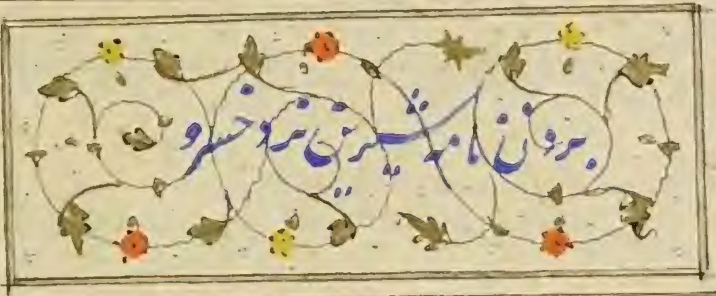 بردن نامه شیرین نزد خسرو